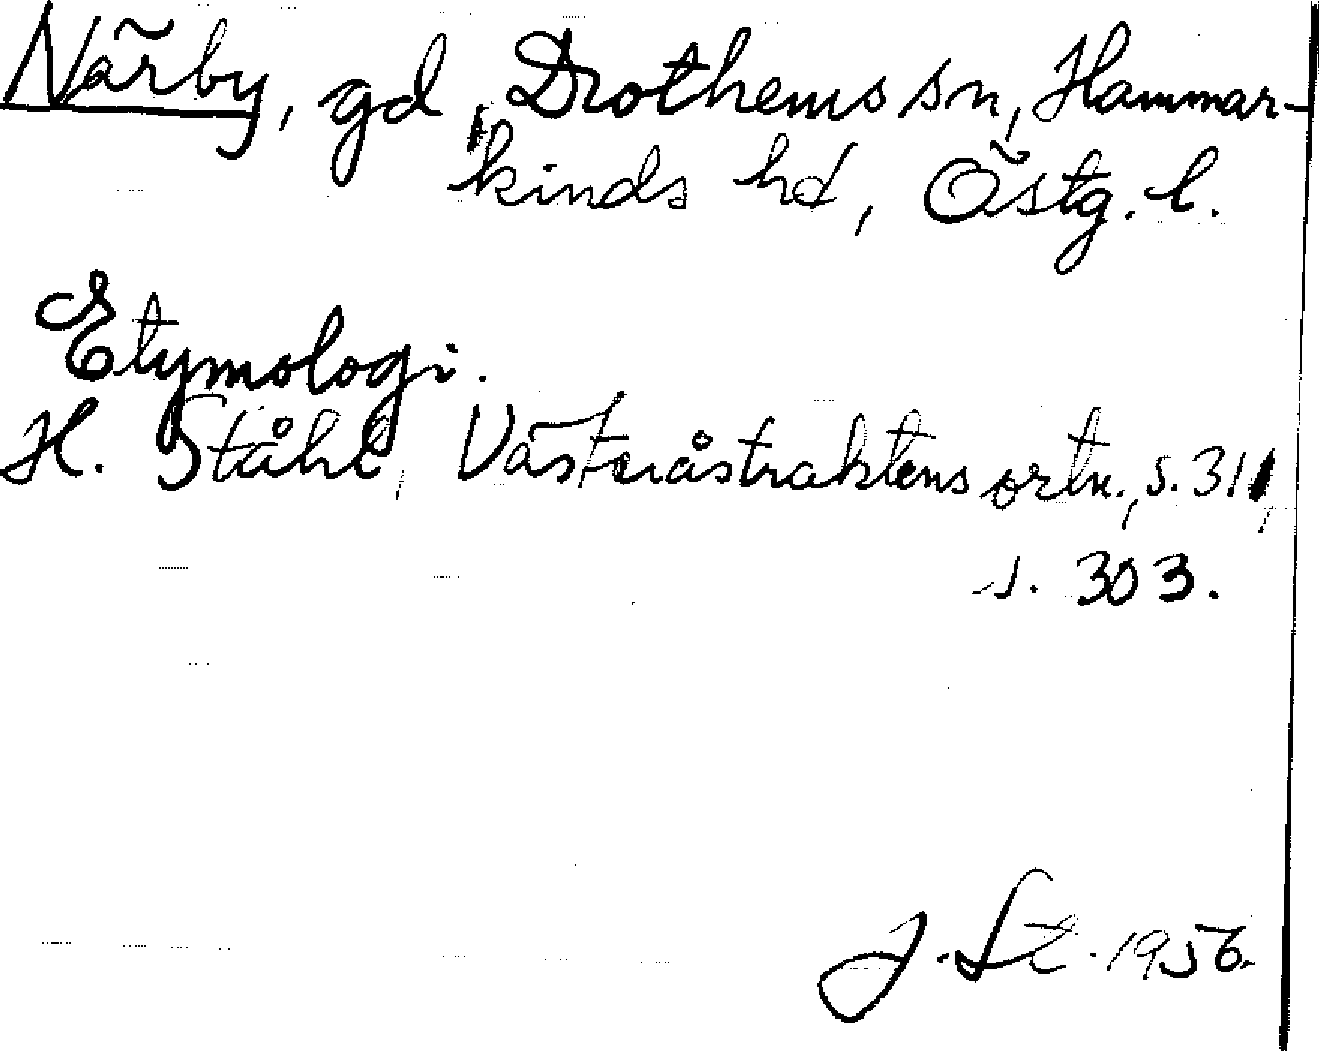 Närby, gd, Drothems sn, Hammar-
kinds hd, Östg. l.
Etymologi.
H. Ståhl, Västeråstraktens ortn., s. 311,
s. 303.
J. St. 1956.